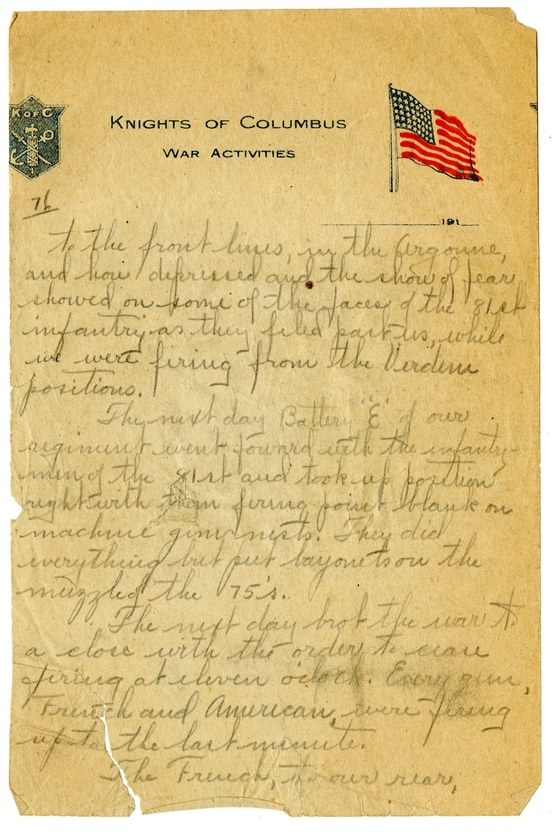 K of C
KNIGHTS OF COLUMBUS
WAR ACTIVITIES
191
76
to the front lines, in the Argonne,
and how depressed and the show of fear
showed on some of the faces of the 81st
infantry as they filed past us, while
we were firing from the Verdun
positions.
The next day Battery "E" of our
regiment went foward with the infantry-
men of the 81st and took up position
right with them firing point blank on
machine gun nests. They did
everything but put bayonets on the
muzzle of the 75's.
The next day brot the war to
a close with the order to cease
firing at eleven o'clock. Every gun,
French and American, were firing
up to the last minute.
The French, to our rear,